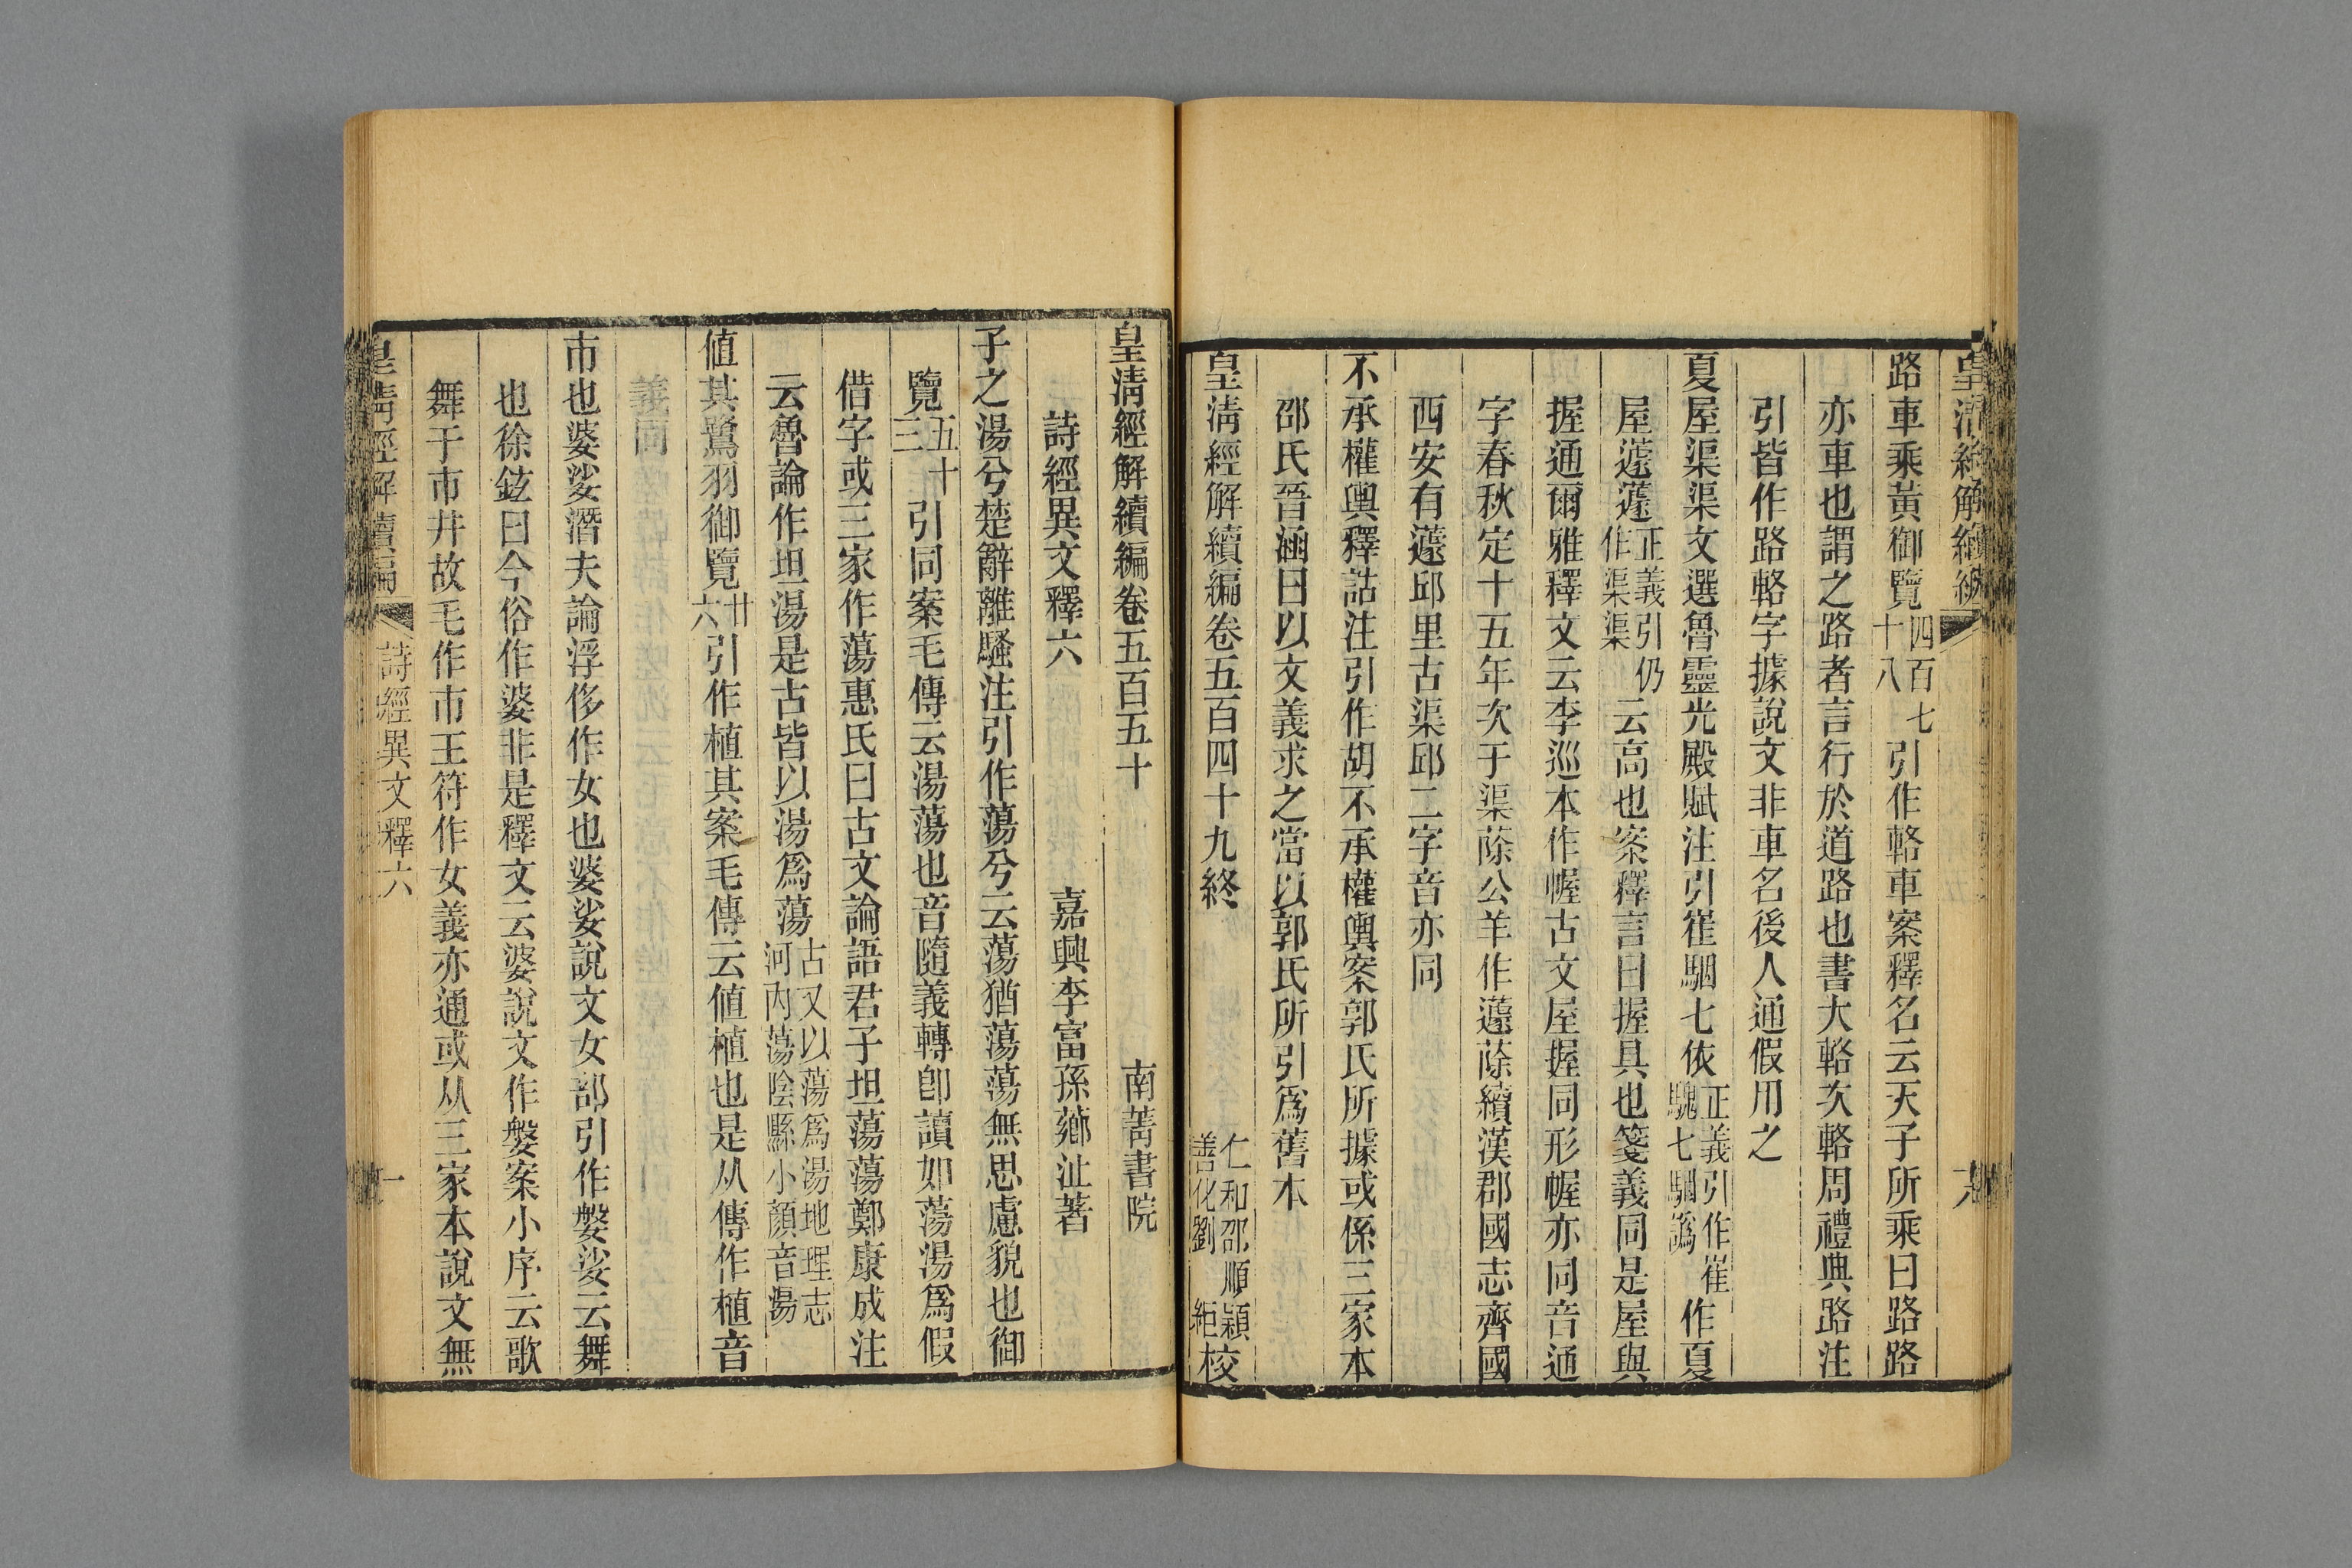 皇清經解續編
路車乘黃御覽四百七十八引作輅車案釋名云天子所乘曰路路
亦車也謂之路者言行於道路也書大輅次輅周禮典路注
引皆作路輅字據說文非車名後人通假用之
夏屋渠渠文選魯靈光殿賦注引崔駰七依正義引作崔騩七駰譌作夏
屋蘧蘧正義引仍作渠渠云高也案釋言曰握具也箋義同是屋與
握通爾雅釋文云李巡本作幄古文屋握同形幄亦同音通
字春秋定十五年次于渠蒢公羊作蘧蒢續漢郡國志齊國
西安有蘧邱里古渠邱二字音亦同
不承權輿釋詁注引作胡不承權輿案郭氏所據或係三家本
邵氏晉涵曰以文義求之當以郭氏所引爲舊本
皇清經解續編卷五百四十九終 仁和邵順穎善化劉 鉅校
皇清經解續編卷五百五十 南菁書院
詩經異文釋六 嘉興李富孫薌沚著
子之湯兮楚辭離騷注引作蕩兮云蕩猶蕩蕩無思慮貌也御
覽五十三引同案毛傳云湯蕩也音隨義轉卽讀如蕩湯爲假
借字或三家作蕩惠氏曰古文論語君子坦蕩蕩鄭康成注
云魯論作坦湯是古皆以湯爲蕩古又以蕩爲湯地理志河內蕩陰縣小顏音湯
値其鷺羽御覽廿六引作植其案毛傳云値植也是从傳作植音
義同
市也婆娑潛夫論浮侈作女也婆娑說文女部引作媻娑云舞
也徐鉉曰今俗作婆非是釋文云婆說文作媻案小序云歌
舞于市井故毛作市王符作女義亦通或从三家本說文無
皇清經解續編 詩經異文釋六 一